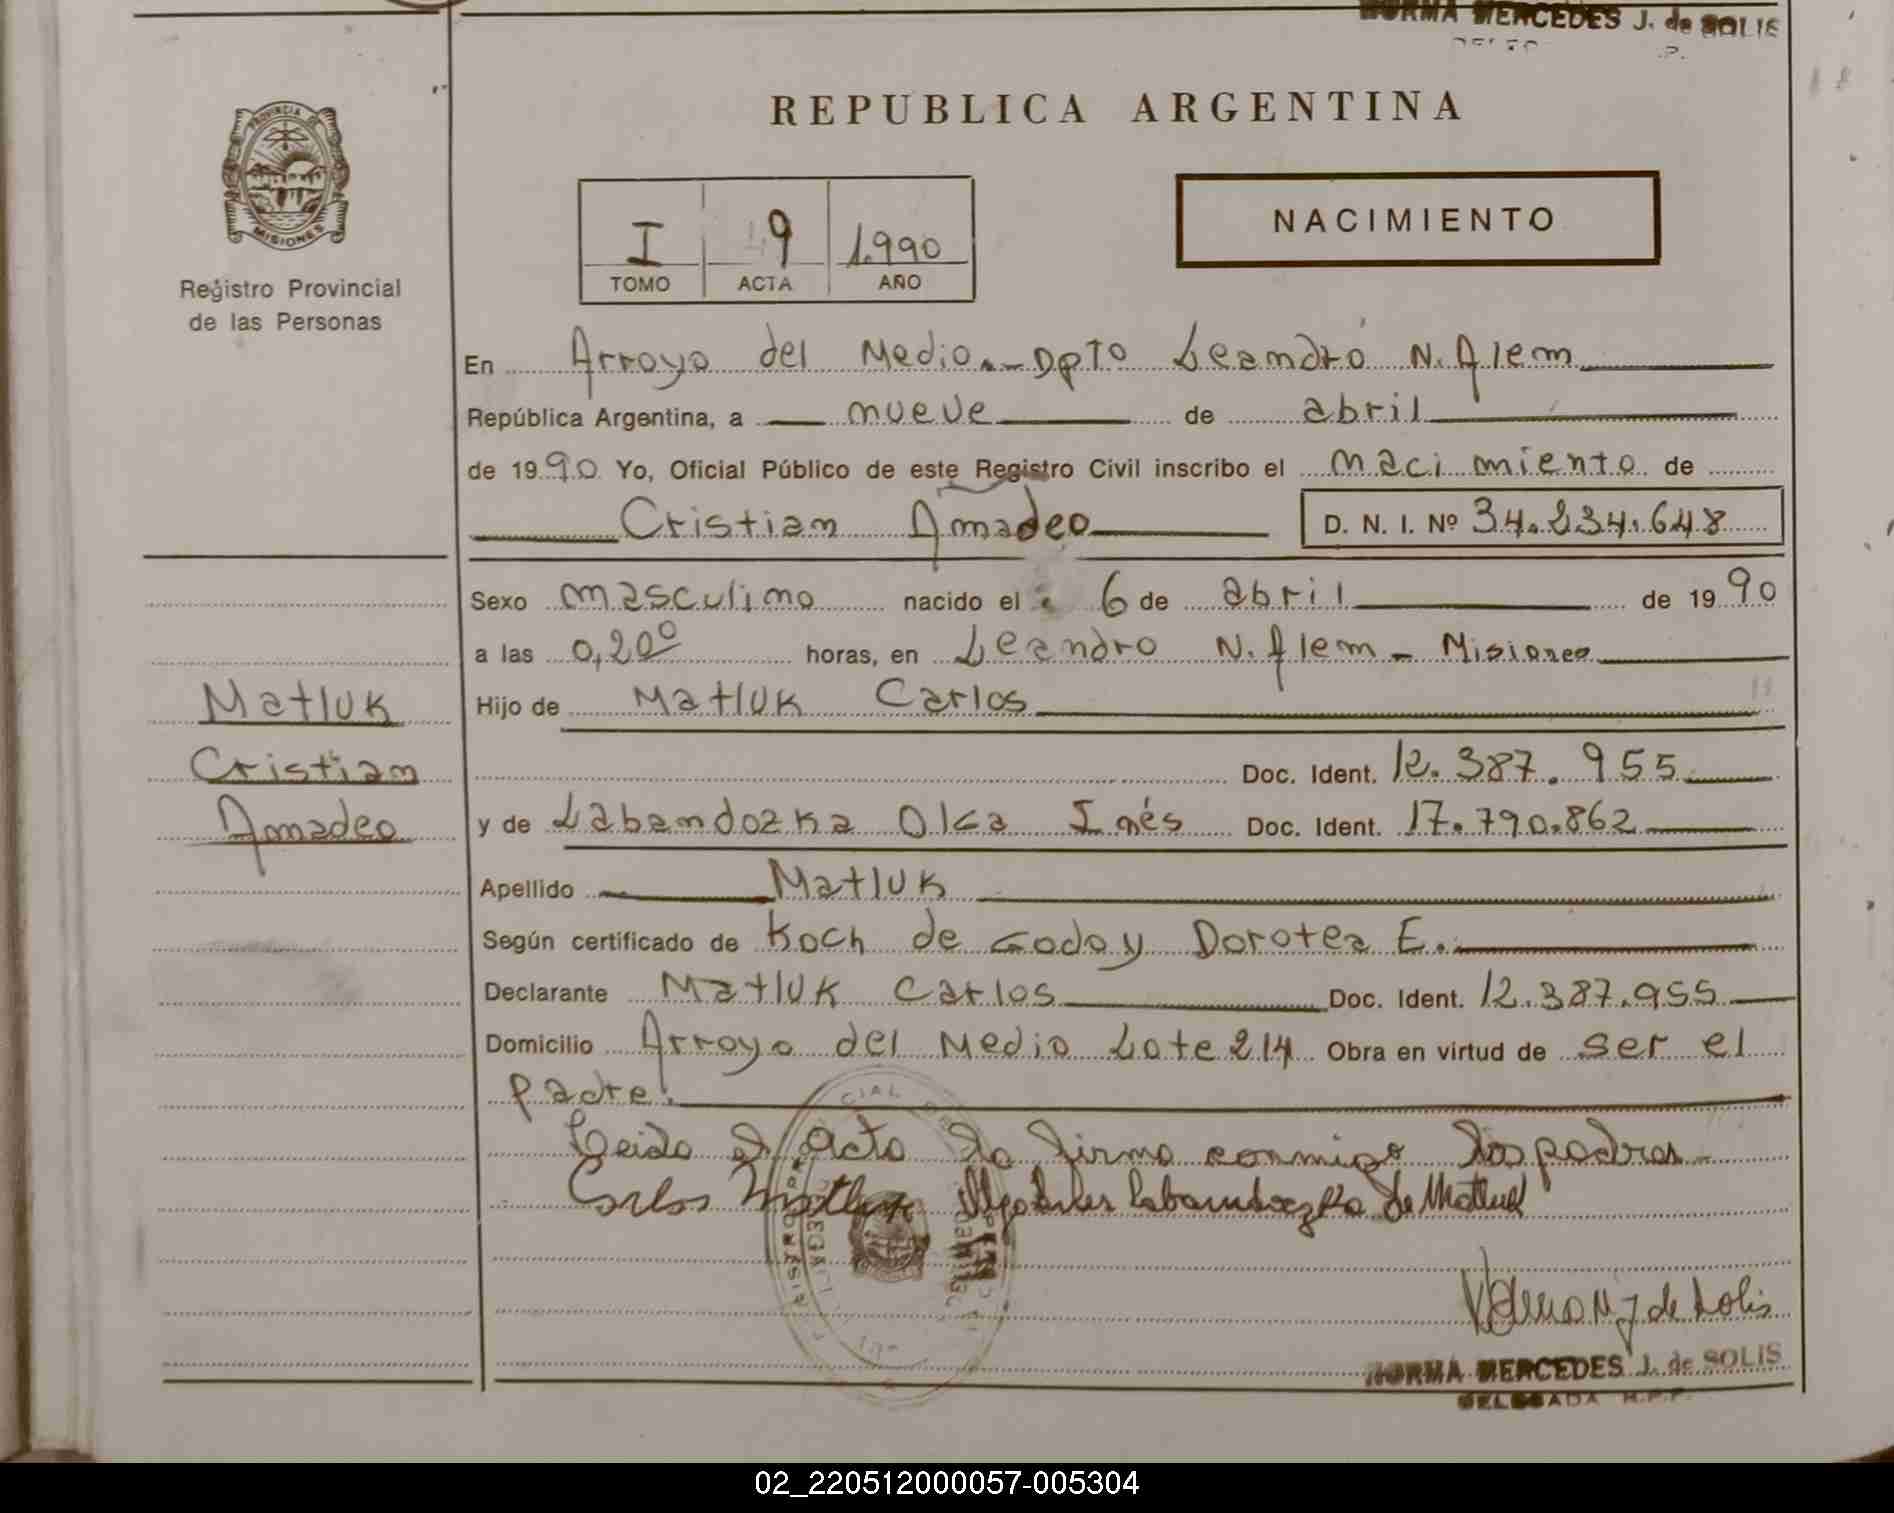 NORMA MERCEDES J. de SOLIS
REPUBLICA ARGENTINA
PROVINCIA DE
MISIONES
Registro Provincial
de las Personas
I 9 1.990
TOMO ACTA AÑO
NACIMIENTO
En Arroyo del Medio.- Dpto Leandro N. Alem
República Argentina, a nueve de abril
de 1990 Yo, Oficial Público de este Registro Civil inscribo el nacimiento de
Cristian Amadeo D. N. I. Nº 34.234.648
Sexo masculino nacido el 6 de abril de 1990
a las 0,20º horas, en Leandro N. Alem - Misiones
Hijo de Matluk Carlos
Doc. Ident. 12.387.955
y de Labandozka Olga Inés Doc. Ident. 17.790.862
Matluk
Cristian
Amadeo
Apellido Matluk
Según certificado de Koch de Godoy Dorotea E.
Declarante Matluk Carlos Doc. Ident. 12.387.955
Domicilio Arroyo del Medio Lote 214 Obra en virtud de ser el
padre.
Leida el Acta la firma conmigo los padres
Carlos Matluk Labandozka de Matluk
Norma M J de Solis
NORMA MERCEDES J. de SOLIS
DELEGADA R.P.P.
02_220512000057-005304